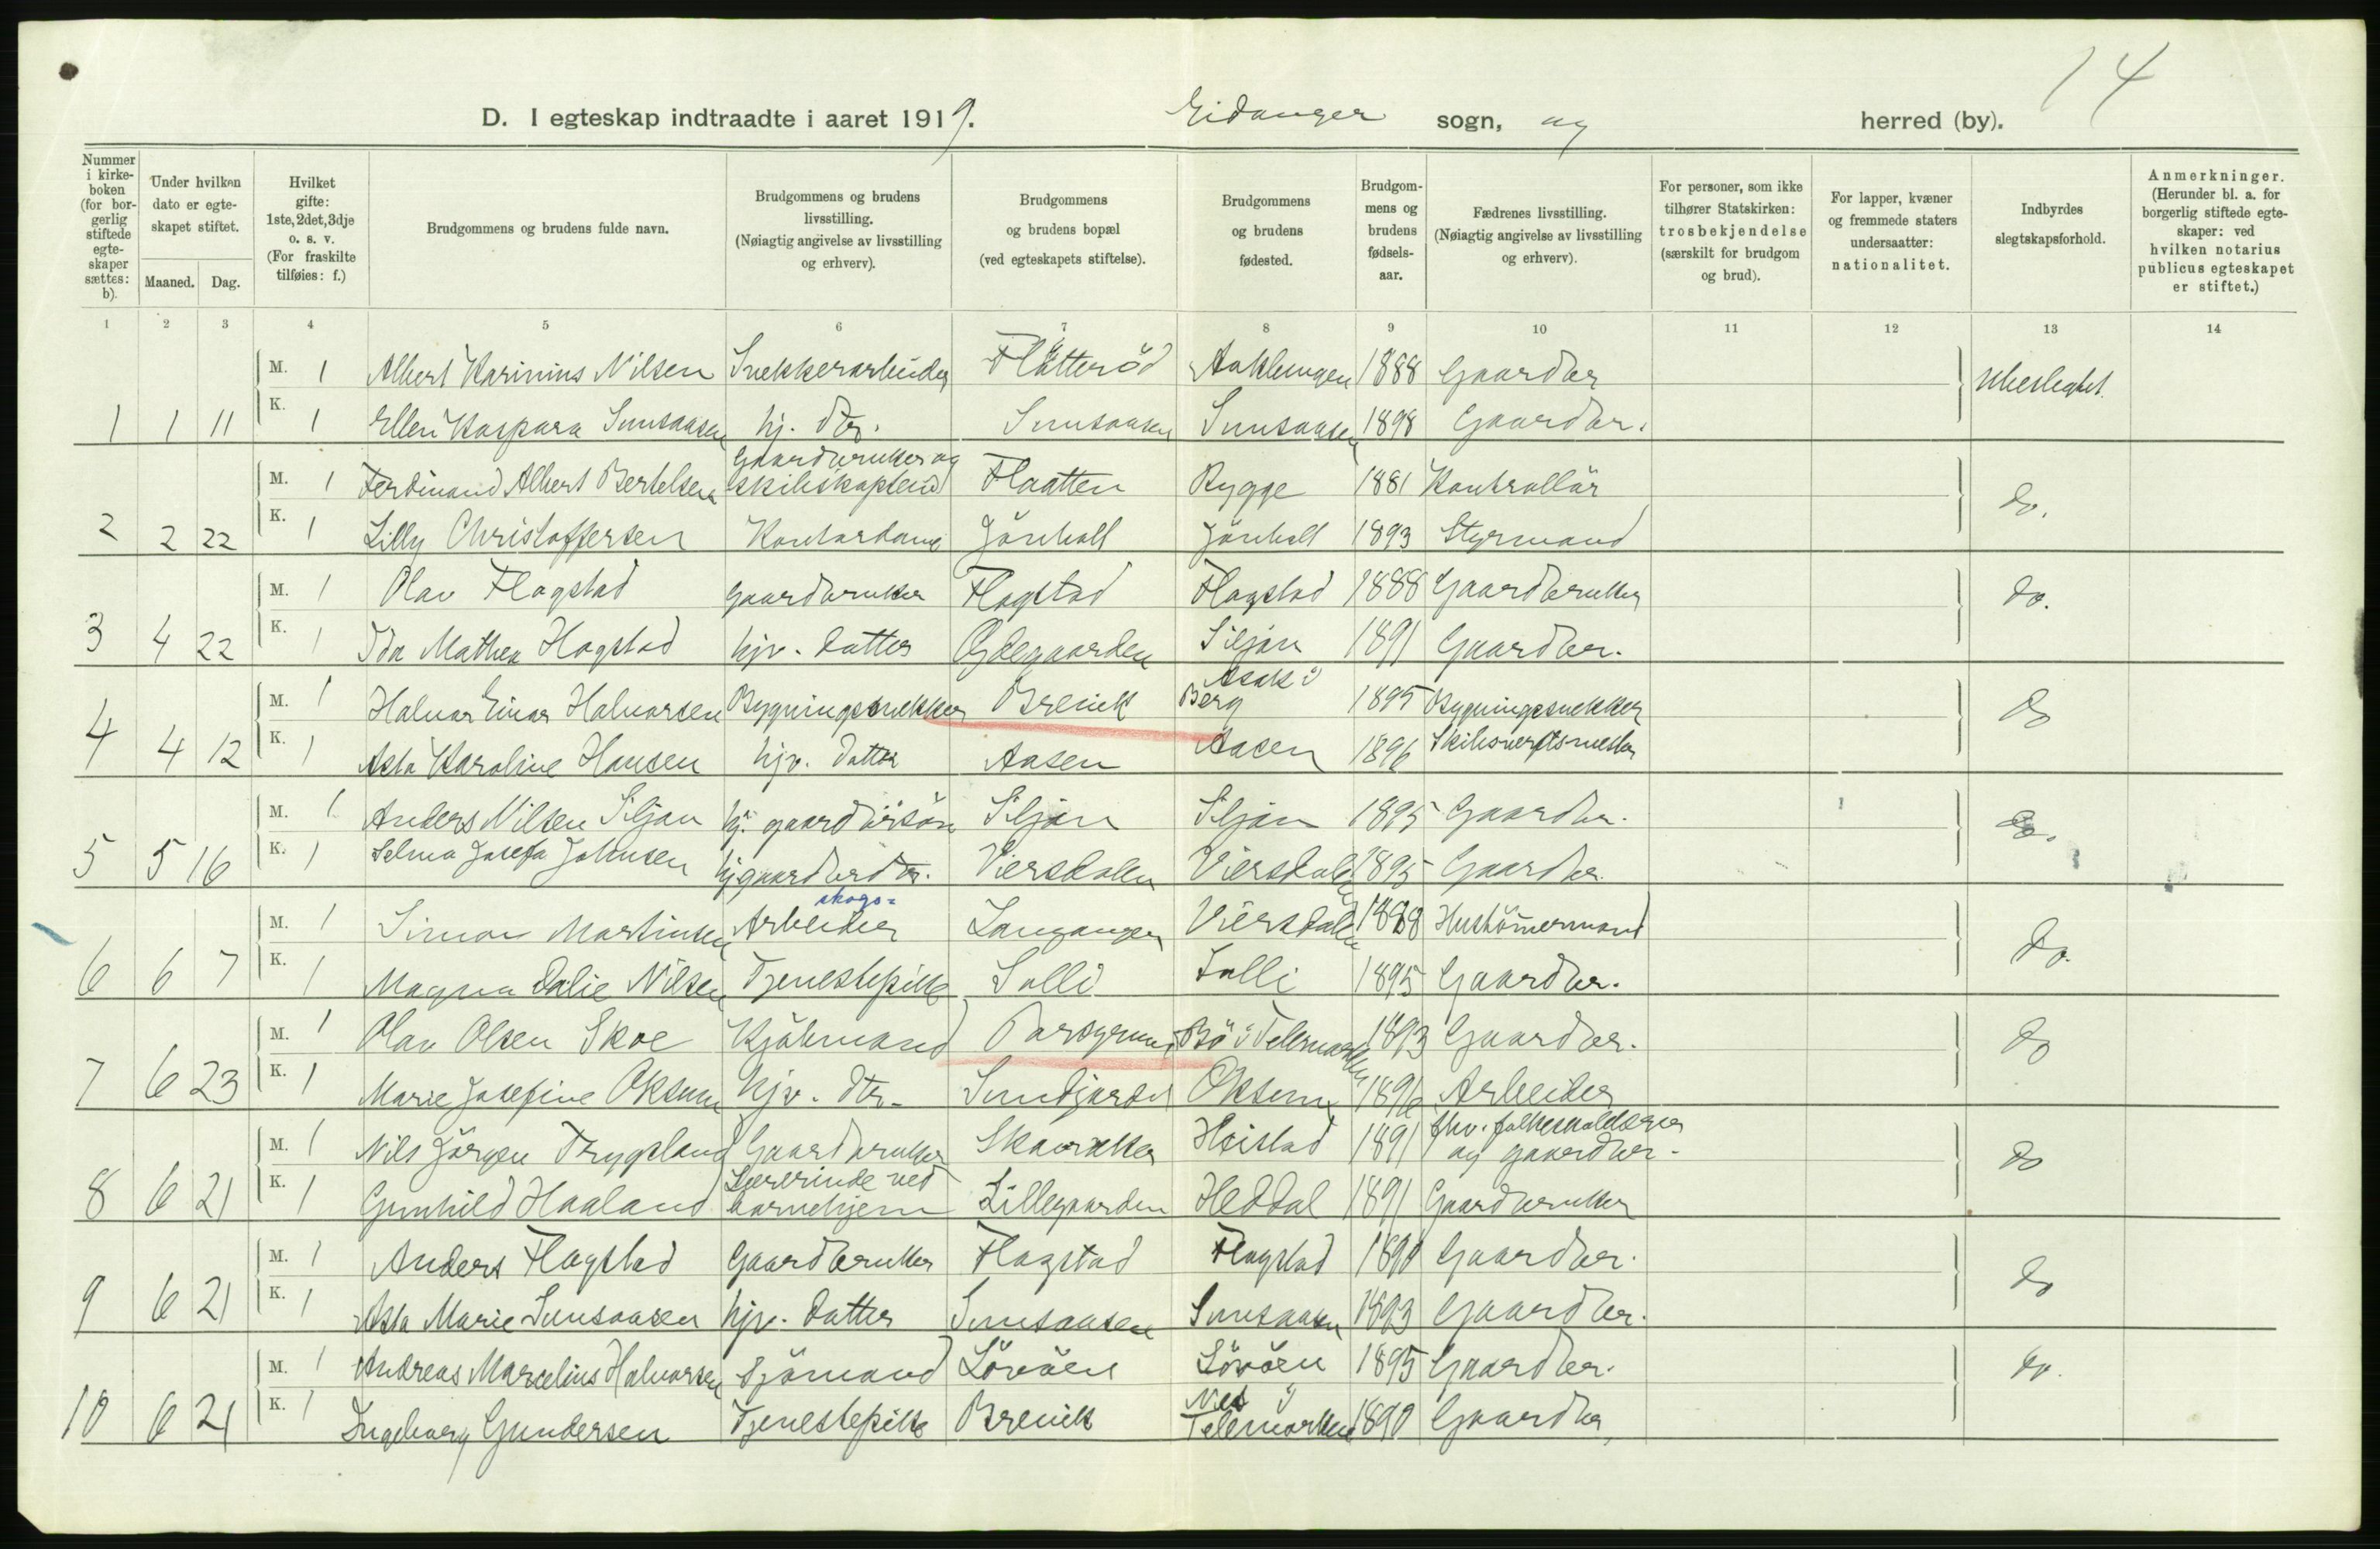 14
D. I egteskap indtraadte i aaret 1919. Eidanger sogn, og herred (by).
Nummer i kirkeboken (for borgerlig stiftede egteskaper sættes: b).
Under hvilken dato er egteskapet stiftet.
Maaned. Dag.
Hvilket gifte: 1ste, 2det, 3dje o. s. v. (For fraskilte tilføies: f.)
Brudgommens og brudens fulde navn.
Brudgommens og brudens livsstilling. (Nøiagtig angivelse av livsstilling og erhverv).
Brudgommens og brudens bopæl (ved egteskapets stiftelse).
Brudgommens og brudens fødested.
Brudgommens og brudens fødselsaar.
Fædrenes livsstilling. (Nøiagtig angivelse av livsstilling og erhverv).
For personer, som ikke tilhører Statskirken: trosbekjendelse (særskilt for brudgom og brud).
For lapper, kvæner og fremmede staters undersaatter: nationalitet.
Indbyrdes slegtskapsforhold.
Anmerkninger. (Herunder bl. a. for borgerlig stiftede egteskaper: ved hvilken notarius publicus egteskapet er stiftet.)
1 2 3 4 5 6 7 8 9 10 11 12 13 14
M. 1 Albert Karinius Nilsen Snekkerarbeider Flåtterød Aaklungen 1888 Gaardbr Ubeslegtet
1 1 11 K. 1 Ellen Kaspara Sunsaasen hj. dtr. Sunsaasen Sunsaasen 1898 Gaardbr.
M. 1 Ferdinand Albert Bertelsen Gaardbruker og skibskaptein Flaatten Rygge 1881 Kontrollør do.
2 2 22 K. 1 Lilly Christoffersen Kontordame Jønholt Jønholt 1893 Styrmand
M. 1 Olav Flagstad Gaardbruker Flagstad Flagstad 1888 Gaardbruker do.
3 4 22 K. 1 Ida Mathea Hogstad hjv. datter Ødegaarden Siljan 1891 Gaardbr.
M. 1 Halvor Einar Halvorsen Bygningssnekker Brevik Asak i Berg 1895 Bygningssnekker do
4 4 12 K. 1 Asta Karoline Hansen hjv. datter Aasen Aasen 1896 Skibsverftsmester
M. 1 Anders Nilsen Siljan hj. gaardbrsøn Siljan Siljan 1895 Gaardbr. do.
5 5 16 K. 1 Selma Josefa Johnsen hj gaardbrdtr. Viersdalen Viersdalen 1895 Gaardbr.
M. 1 Simon Martinsen skogs= Arbeider Langangen Viersdalen 1888 Hustømmermand do.
6 6 7 K. 1 Magna Dalie Nilsen Tjenestepike Solli Solli 1895 Gaardbr.
M. 1 Olav Olsen Skoe Kjøbmand Porsgrund Bø i Telemarken 1893 Gaardbr. do
7 6 23 K. 1 Marie Josefine Oksum hjv. dtr. Sundjordet Oksum 1896 Arbeider
M. 1 Nils Jørgen Trygsland Gaardbruker Skavraker Heistad 1891 fhv. folkeskolelærer og gaardbr. do
8 6 21 K. 1 Gunhild Haaland Lærerinde ved barnehjem Lillegaarden Heddal 1891 Gaardbruker
M. 1 Anders Flagstad Gaardbruker Flagstad Flagstad 1890 Gaardbr. do
9 6 21 K. 1 Asta Marie Sunsaasen hjv. datter Sunsaasen Sunsaasen 1893 Gaardbr.
M. 1 Andreas Marcelius Halvorsen Sjømand Løvøen Løvøen 1895 Gaardbr. do.
10 6 21 K. 1 Ingeborg Gundersen Tjenestepike Brevik Telemarken 1890 Gaardbr